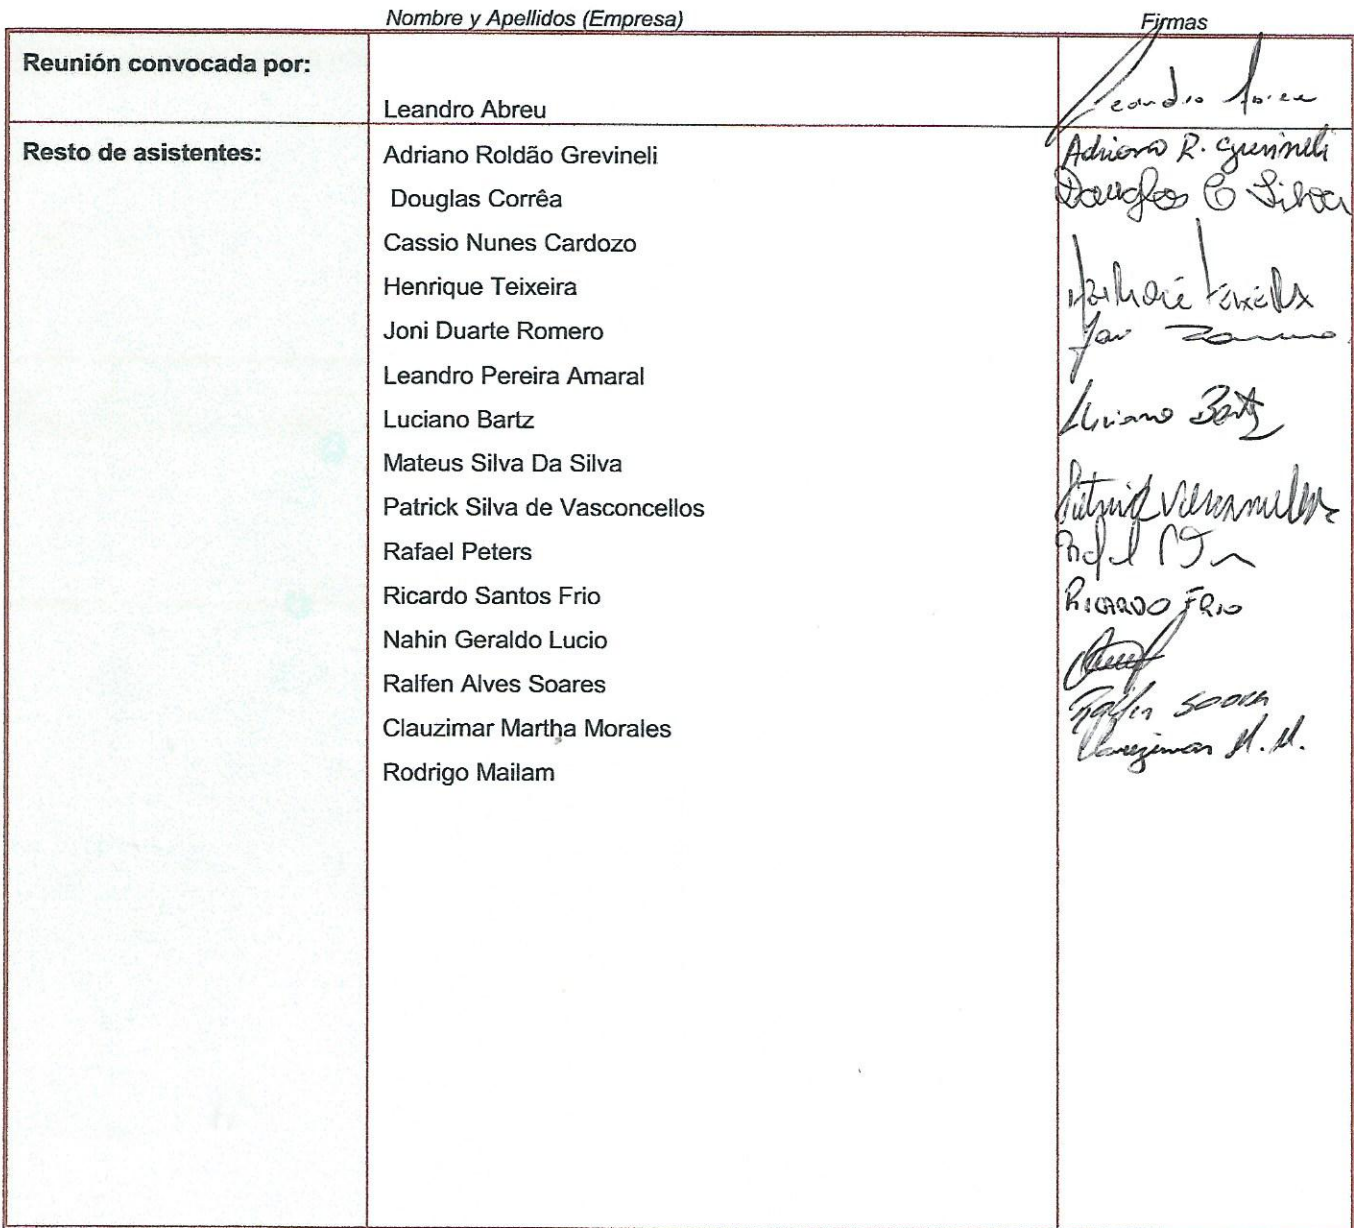 Nombre y Apellidos (Empresa) Firmas
Reunión convocada por:
Leandro Abreu Leandro Abreu
Resto de asistentes: Adriano Roldão Grevineli Adriano R. Grevineli
Douglas Corrêa Douglas C Silva
Cassio Nunes Cardozo
Henrique Teixeira Teixeira
Joni Duarte Romero
Leandro Pereira Amaral
Luciano Bartz Luciano Bartz
Mateus Silva Da Silva
Patrick Silva de Vasconcellos Patrick Vasconcellos
Rafael Peters Rafael
Ricardo Santos Frio RICARDO FRIO
Nahin Geraldo Lucio
Ralfen Alves Soares Ralfen Soares
Clauzimar Martha Morales Clauzimar M. M.
Rodrigo Mailam